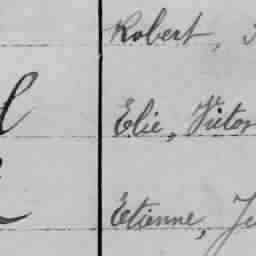 Robert,
Elie, Victor
Etienne,